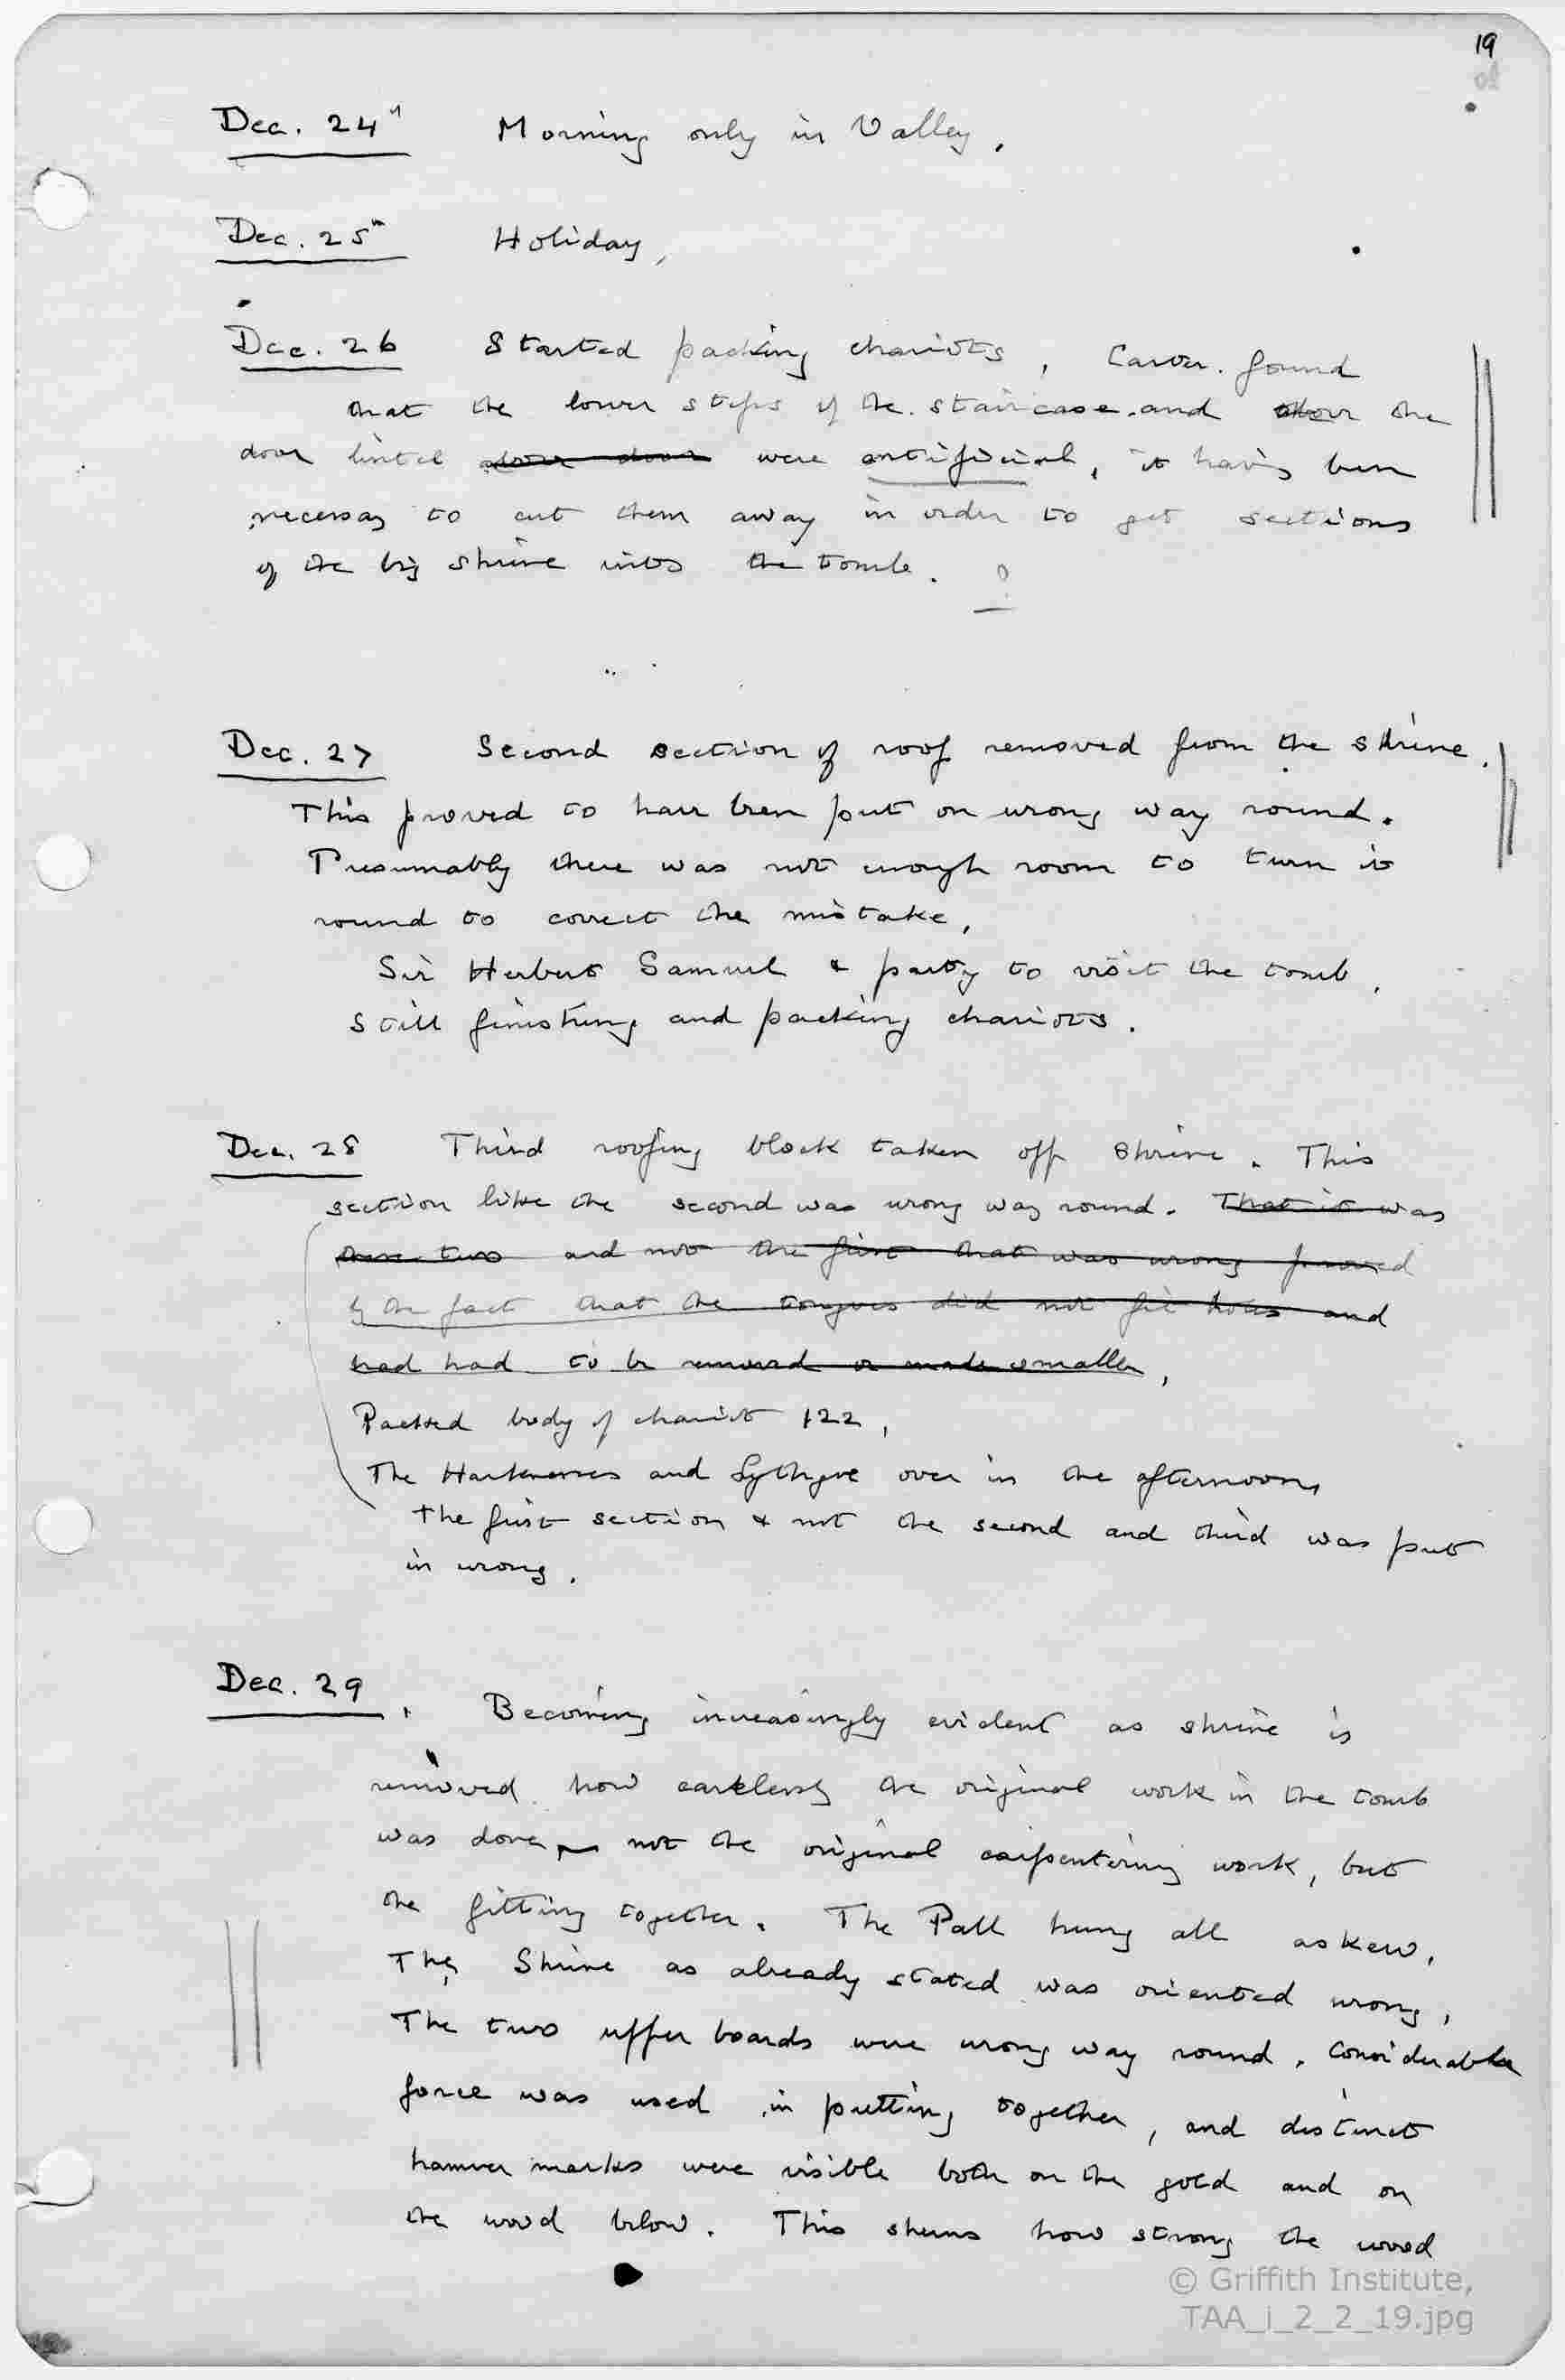 19
Dec. 24th Morning only in Valley.
Dec. 25th Holiday.
Dec. 26 Started packing chariots. Carter found
that the lower steps of the staircase and the
door lintel over door were artificial, it having been
necessary to cut them away in order to get sections
of the big shrine into the tomb. ?
Dec. 27 Second section of roof removed from the shrine.
This proved to have been put on wrong way round.
Presumably there was not enough room to turn it
round to correct the mistake.
Sir Herbert Samuel & party to visit the tomb.
Still finishing and packing chariots.
Dec. 28 Third roofing block taken off shrine. This
section like the second was wrong way round. That it was
these two and not the first that was wrong proved
by the fact that the tongues did not fit holes and
had had to be removed or made smaller.
Packed body of chariot 122.
The Harknesses and Lythgoe over in the afternoon.
The first section & not the second and third was put
in wrong.
Dec. 29. Becoming increasingly evident as shrine is
removed how carelessly the original work in the tomb
was done, not the original carpentering work, but
the fitting together. The Pall hung all askew.
The Shrine as already stated was oriented wrong.
The two upper boards were wrong way round. Considerable
force was used in putting together, and distinct
hammer marks were visible both on the gold and on
the wood below. This shews how strong the wood
© Griffith Institute,
TAA_i_2_2_19.jpg